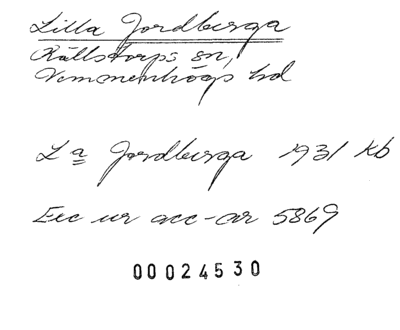 Lilla Jordberga
Källstorps sn,
Vemmenhögs hd
La Jordberga 1931 Kb
Exc ur acc-ar 5869
00024530